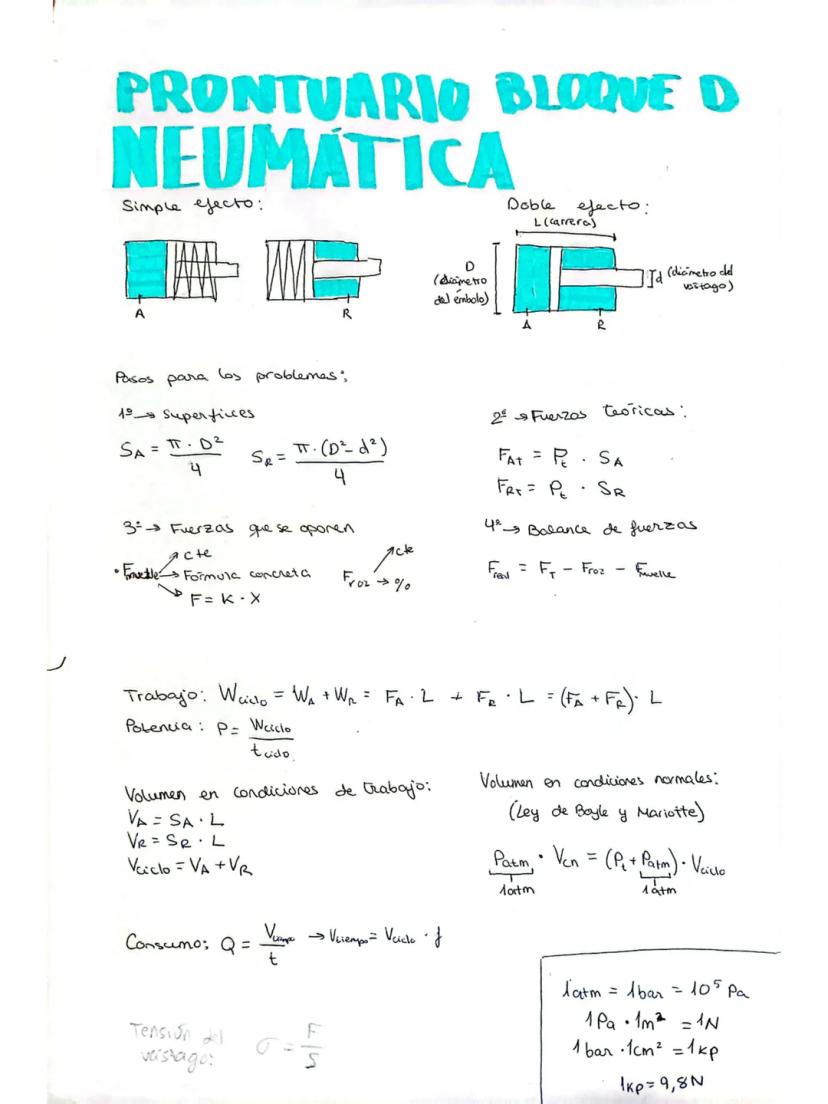 PRONTUARIO BLOQUE D
NEUMÁTICA
Simple efecto:
Doble efecto:
L (carrera)
D
(diámetro
del émbolo)
d (diámetro del
vástago)
A
R
A
R
Pasos para los problemas:
1º → Superficies
S_A = π · D² / 4
S_R = π · (D² - d²) / 4
2º → Fuerzas teóricas:
F_AT = P_t · S_A
F_RT = P_t · S_R
3º → Fuerzas que se oponen
cte
• F_muelle → Fórmula concreta
F = K · X
cte
F_roz → %
4º → Balance de fuerzas
F_real = F_T - F_roz - F_muelle
Trabajo: W_ciclo = W_A + W_R = F_A · L + F_R · L = (F_A + F_R) · L
Potencia: P = W_ciclo / t_ciclo
Volumen en condiciones de trabajo:
V_A = S_A · L
V_R = S_R · L
V_ciclo = V_A + V_R
Volumen en condiciones normales:
(Ley de Boyle y Mariotte)
P_atm · V_cn = (P_t + P_atm) · V_ciclo
1atm
1atm
Consumo: Q = V_tiempo / t → V_tiempo = V_ciclo · f
Tensión del
vástago: σ = F / S
1atm = 1bar = 10⁵ Pa
1Pa · 1m² = 1N
1bar · 1cm² = 1kp
1kp = 9,8N